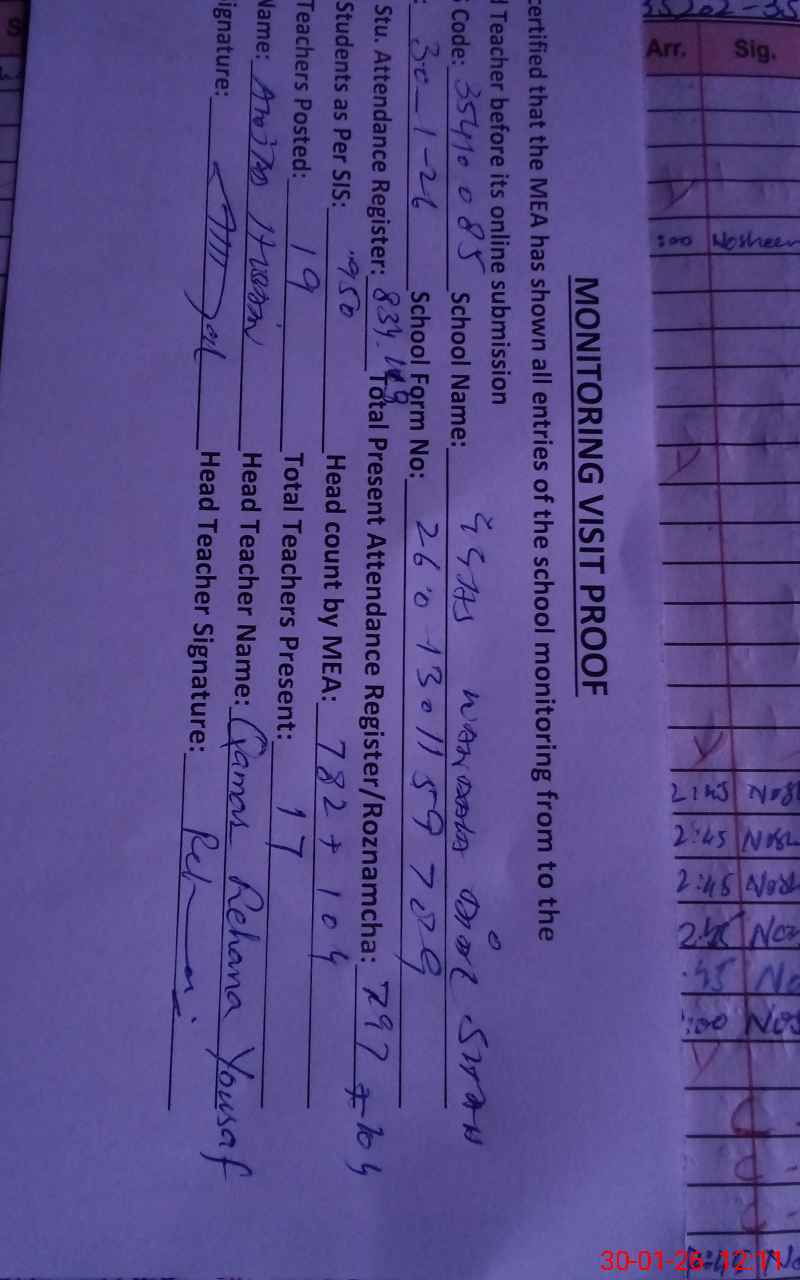 MONITORING VISIT PROOF
certified that the MEA has shown all entries of the school monitoring from to the
d Teacher before its online submission
Code: 35410085 School Name: GGHS WANDALA DIAL SHAH
: 30-1-26 School Form No:
Stu. Attendance Register: Total Present Attendance Register/Roznamcha: 797 + 104
Students as Per SIS: 950 Head count by MEA: 782 + 104
Teachers Posted: 19 Total Teachers Present: 17
Name: Head Teacher Name: Qamar Rehana Yousaf
ignature: Head Teacher Signature:
Arr. Sig.
:00 Nosheen
2:45
2:45
2:45
2:45
:45 No
:00 Nos
30-01-26 12:11